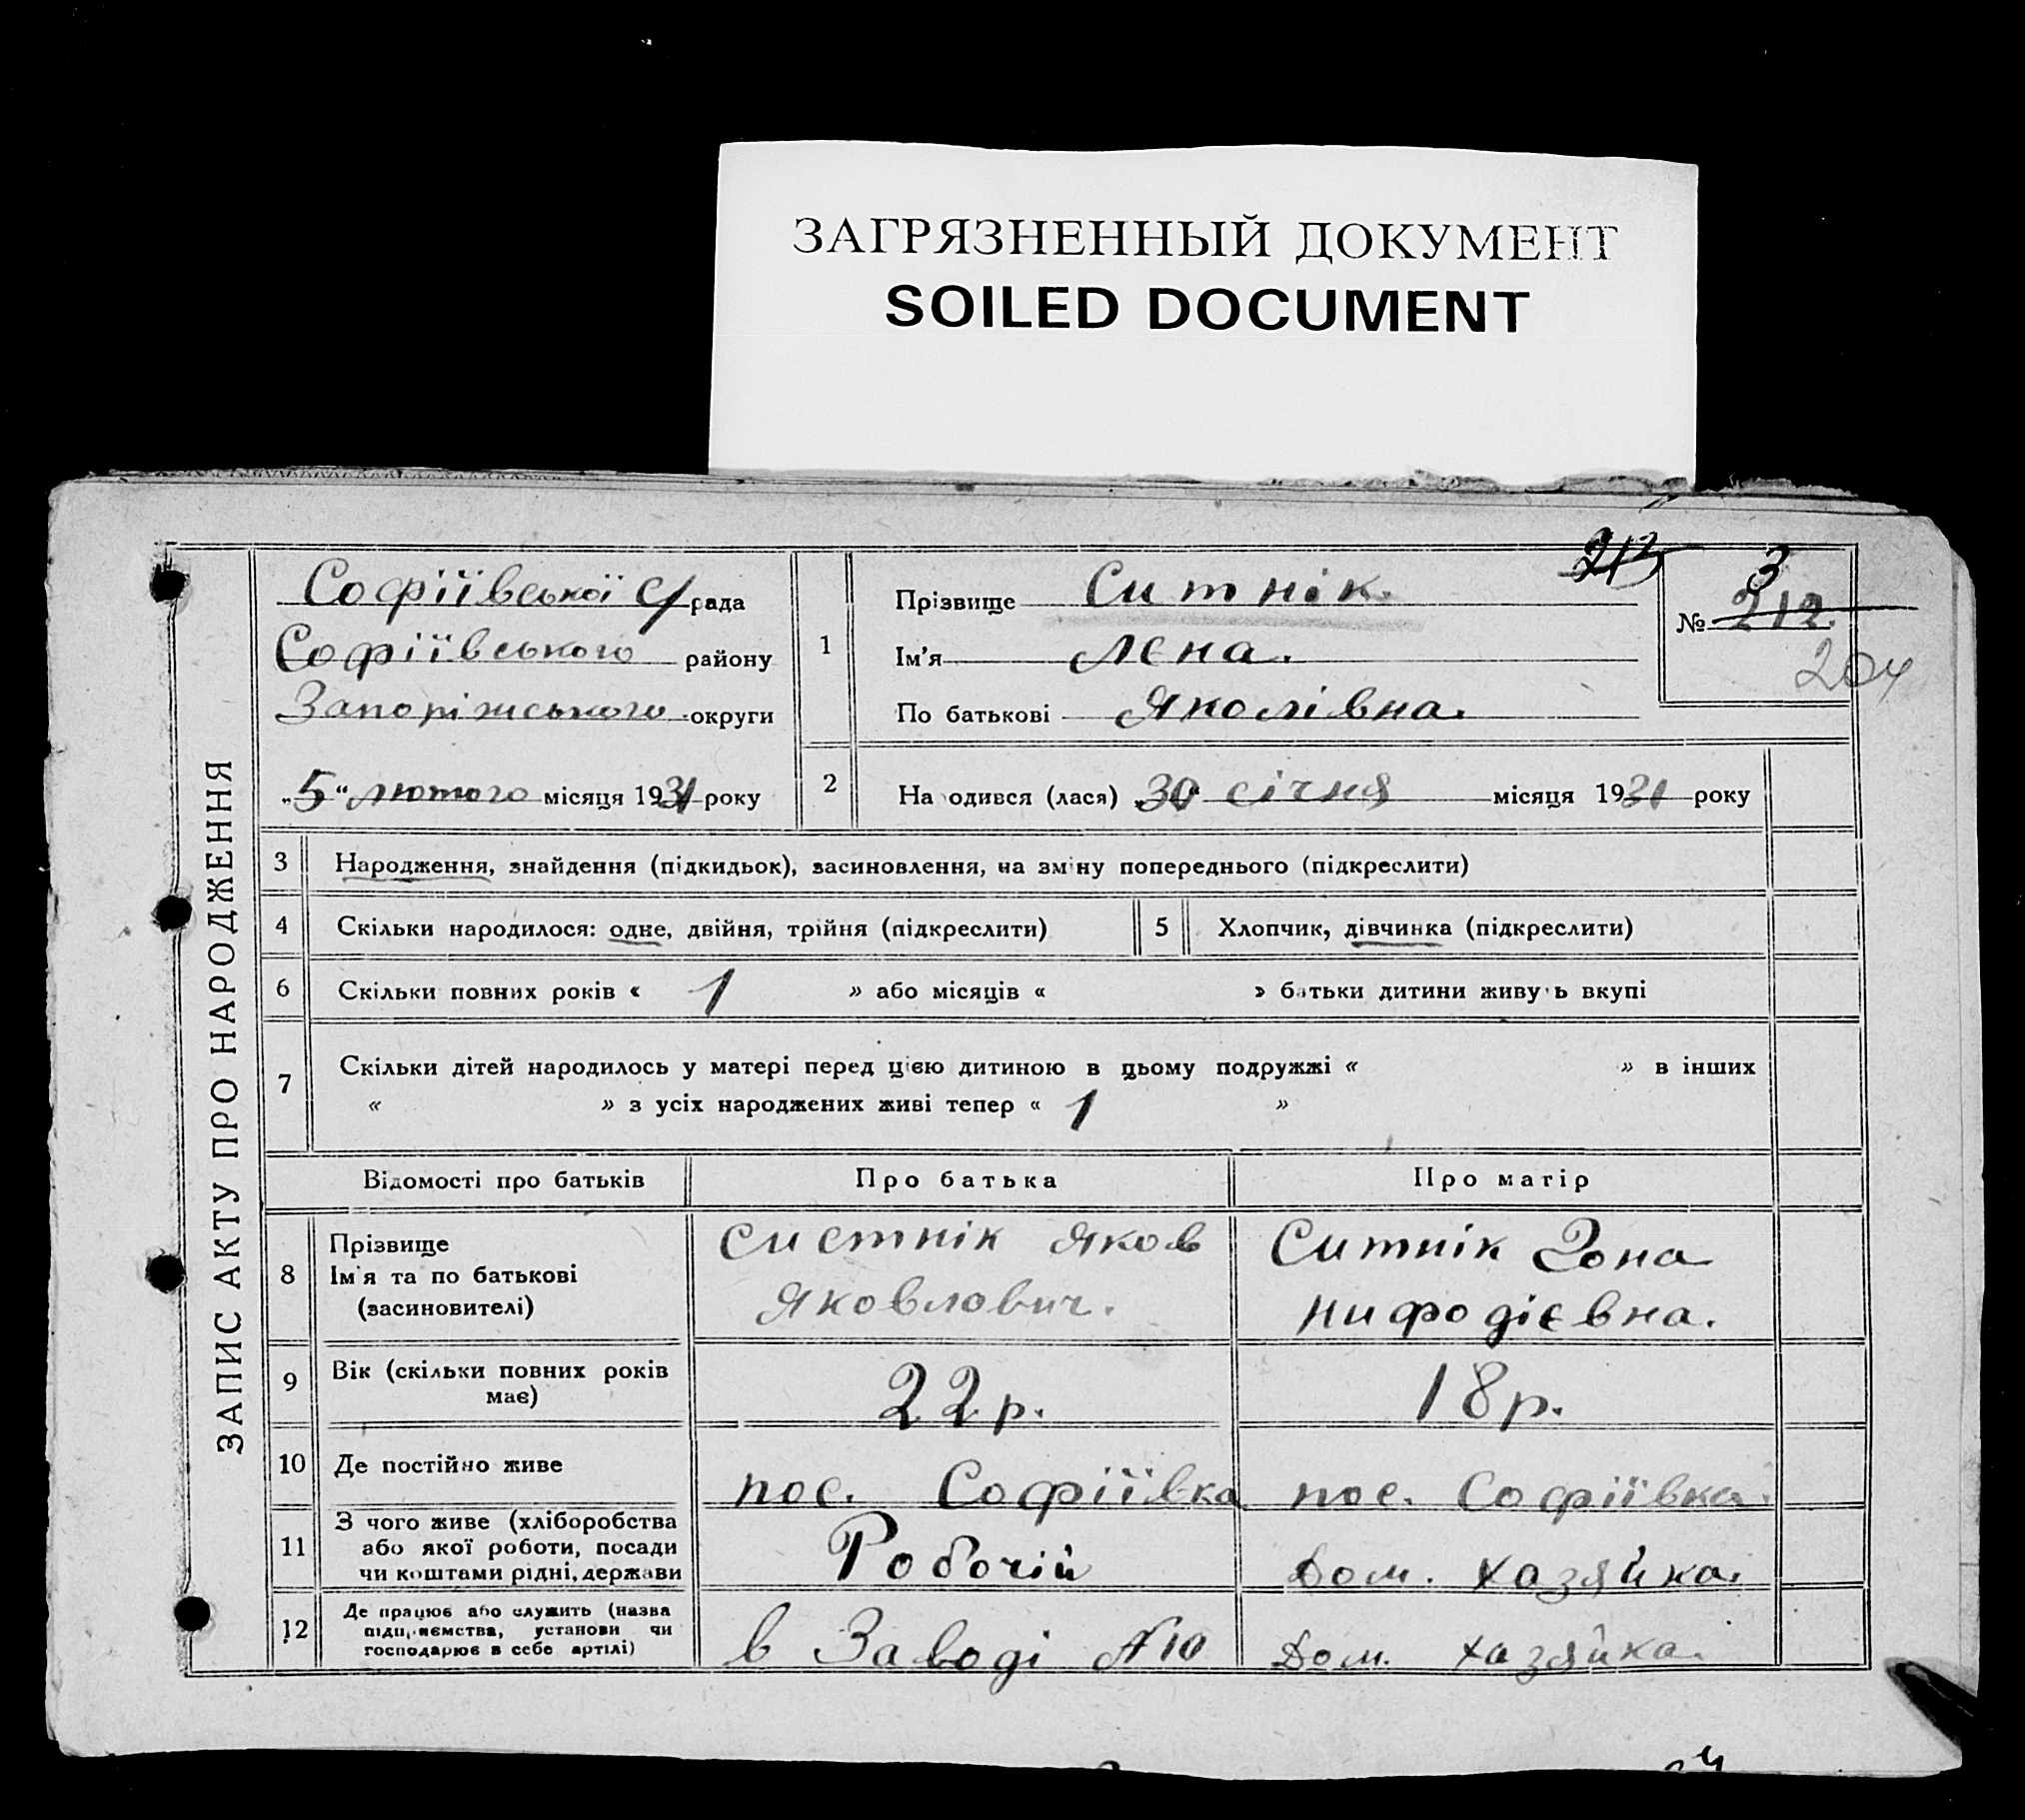 ЗАГРЯЗНЕННЫЙ ДОКУМЕНТ
SOILED DOCUMENT
ЗАПИС АКТУ ПРО НАРОДЖЕННЯ
Софіївської с/рада
Софіївського району
Запоріжського округи
„5“ лютого місяця 1931 року
1
Прізвище Ситнік.
Ім'я Лєна.
По батькові Яколівна.
3
№ 212.
204
2 На одився (лася) „30“ січня місяця 1931 року
3 Народження, знайдення (підкидьок), засиновлення, на зміну попереднього (підкреслити)
4 Скільки народилося: одне, двійня, трійня (підкреслити) 5 Хлопчик, дівчинка (підкреслити)
6 Скільки повних років « 1 » або місяців « » батьки дитини живуть вкупі
7 Скільки дітей народилось у матері перед цією дитиною в цьому подружжі « » в інших
« » з усіх народжених живі тепер « 1 »
Відомості про батьків Про батька Про матір
8 Прізвище
Ім'я та по батькові
(засиновителі)
Систнік Яков
Яковлович.
Ситнік Зона
Нифодієвна.
9 Вік (скільки повних років
має)
22 р. 18 р.
10 Де постійно живе пос. Софіївка пос. Софіївка.
11 З чого живе (хліборобства
або якої роботи, посади
чи коштами рідні, держави
Робочій Дом. хазяйка.
12 Де працює або служить (назва
підприємства, установи чи
господарює в себе артілі)
в Заводі №10 Дом. хазяйка.